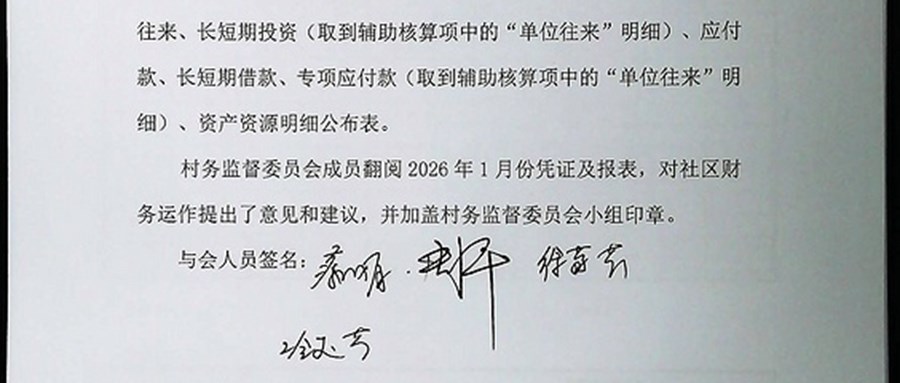 往来、长短期投资（取到辅助核算项中的“单位往来”明细）、应付
款、长短期借款、专项应付款（取到辅助核算项中的“单位往来”明
细）、资产资源明细公布表。
村务监督委员会成员翻阅 2026 年 1 月份凭证及报表，对社区财
务运作提出了意见和建议，并加盖村务监督委员会小组印章。
与会人员签名：